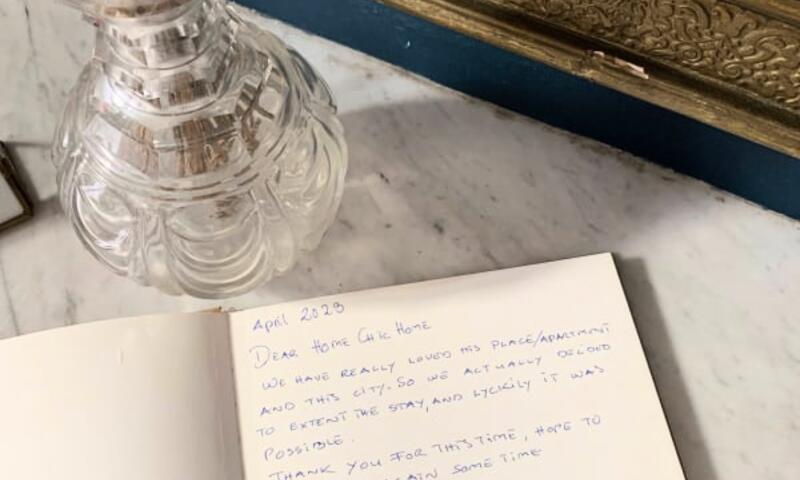 April 2023
DEAR HOME CHIC HOME
WE HAVE REALLY LOVED HIS PLACE/APARTMENT
AND THIS CITY. SO WE ACTUALLY DECIDED
TO EXTENT THE STAY, AND LYCKILY IT WAS
POSSIBLE.
THANK YOU FOR THIS TIME, HOPE TO
SOME TIME